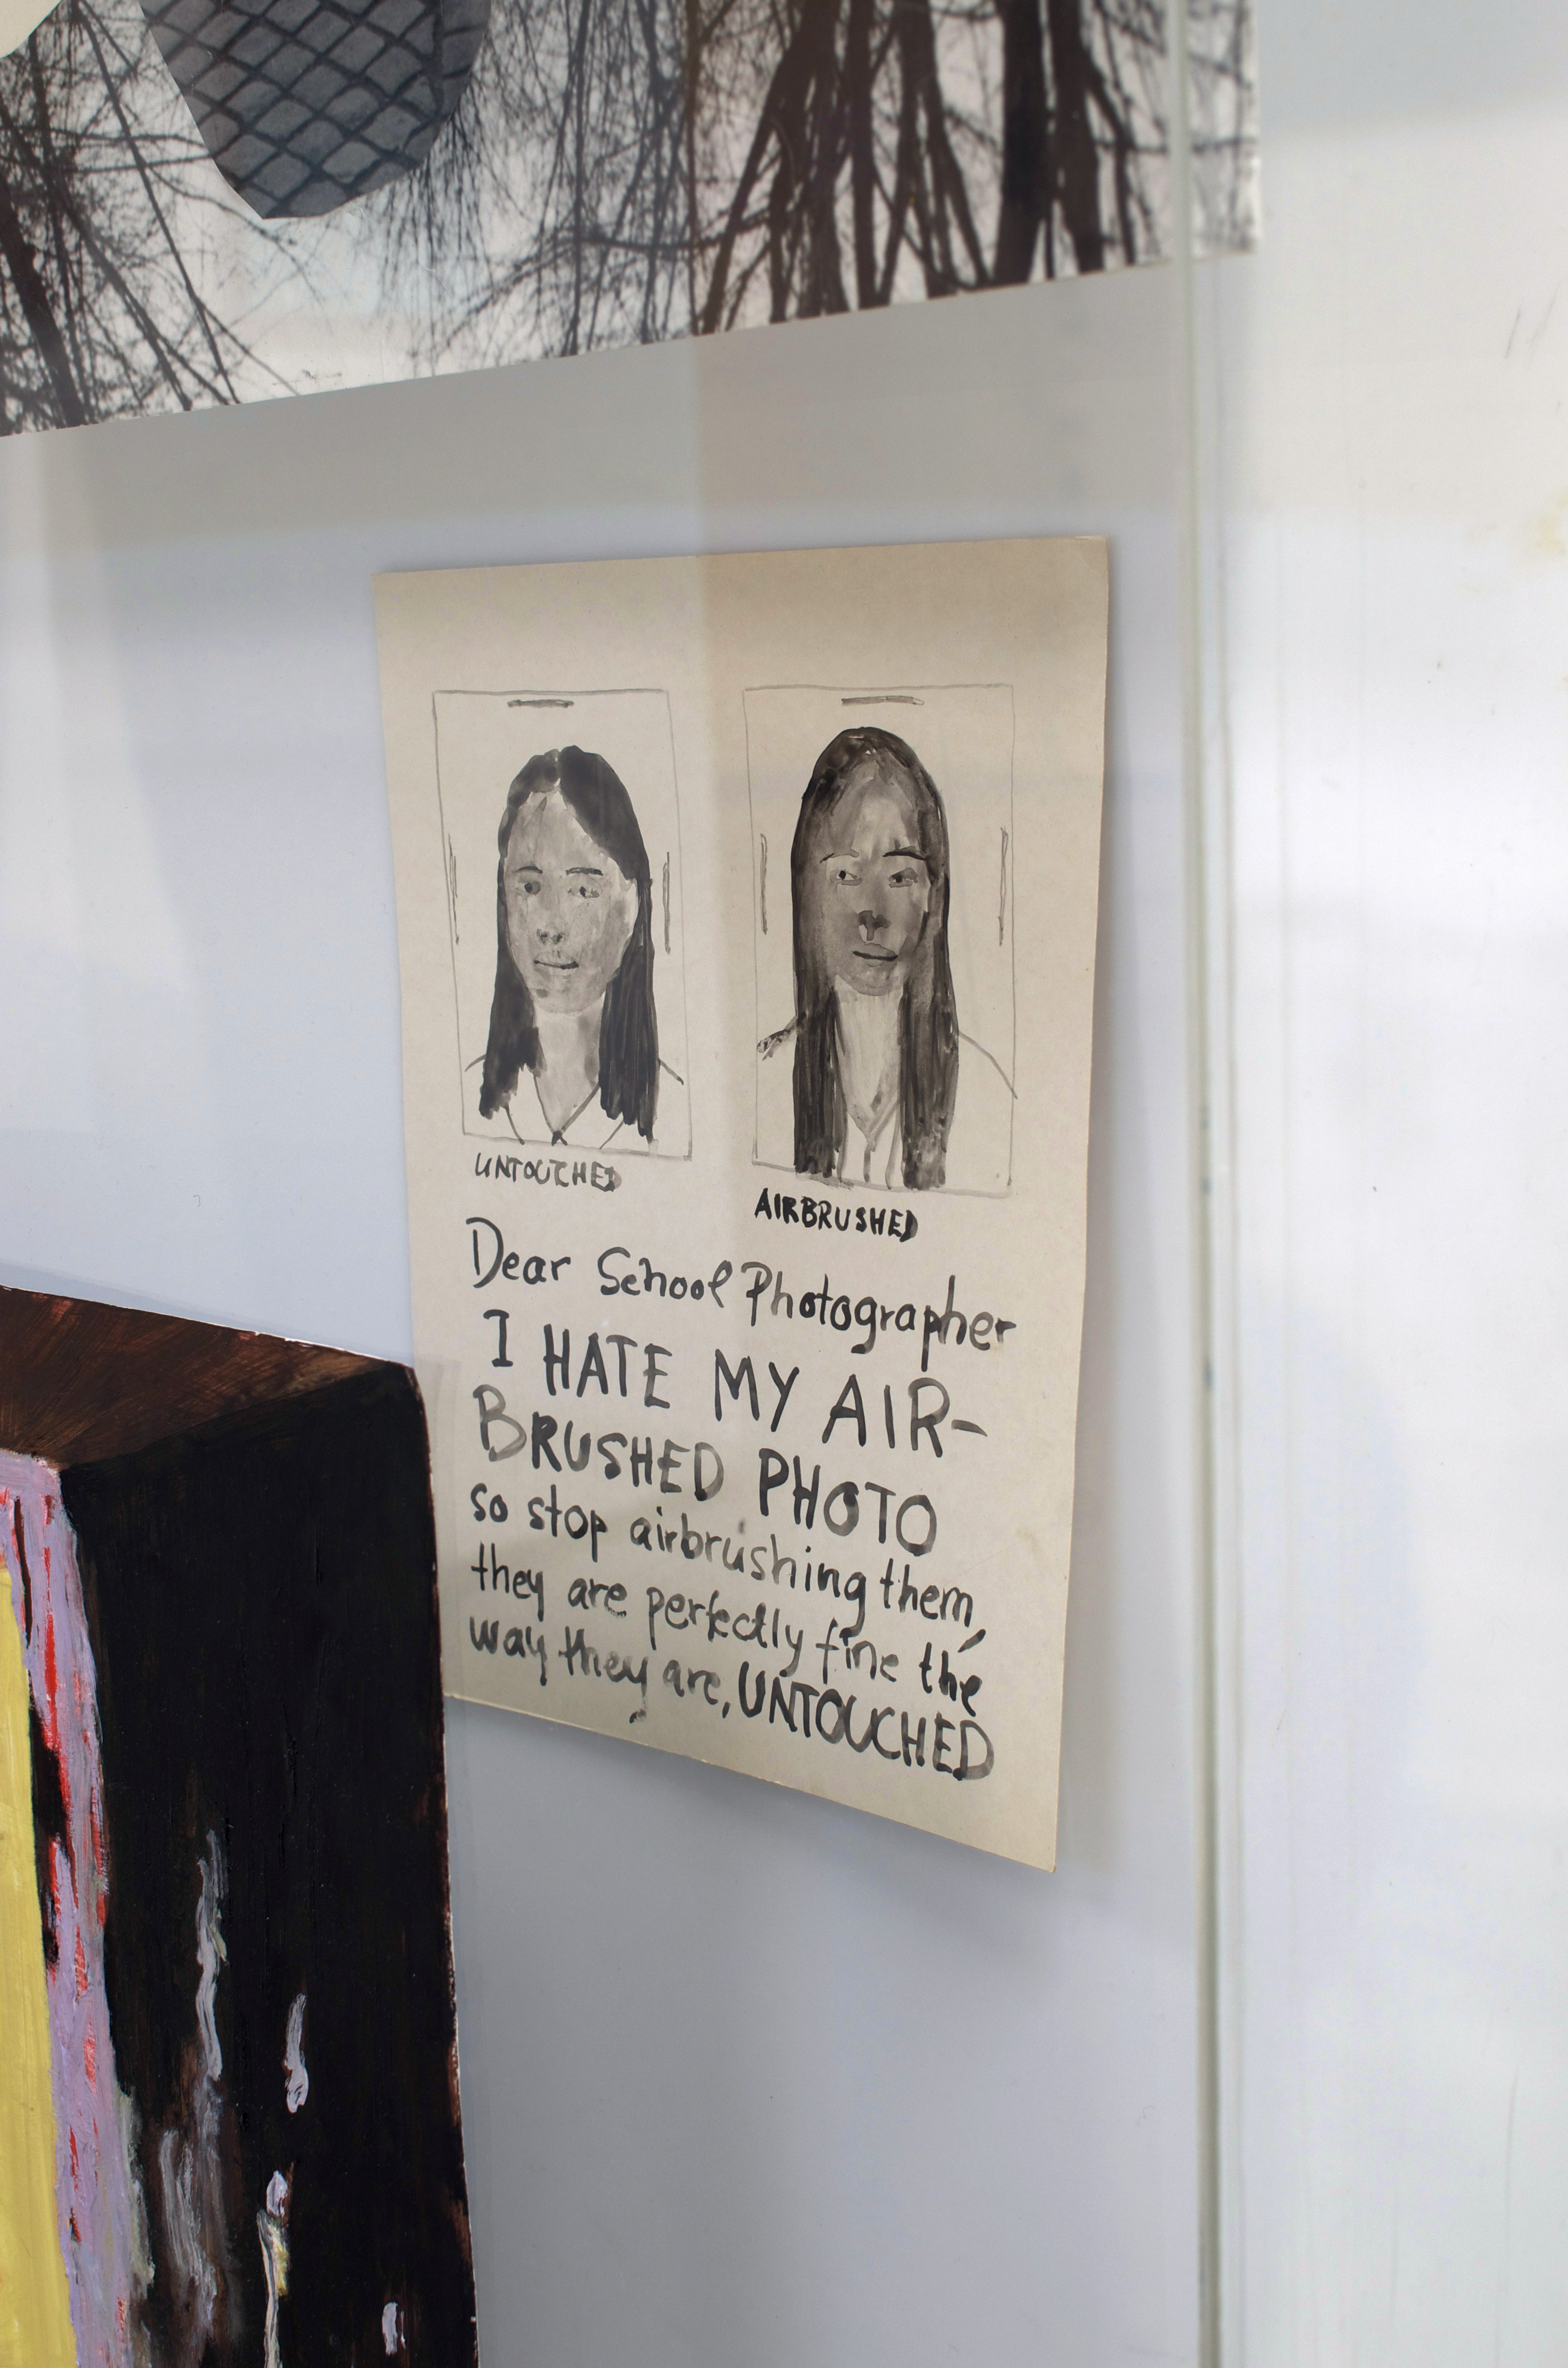 UNTOUCHED
AIRBRUSHED
Dear School Photographer
I HATE MY AIR-
BRUSHED PHOTO
so stop airbrushing them,
they are perfectly fine the
way they are, UNTOUCHED